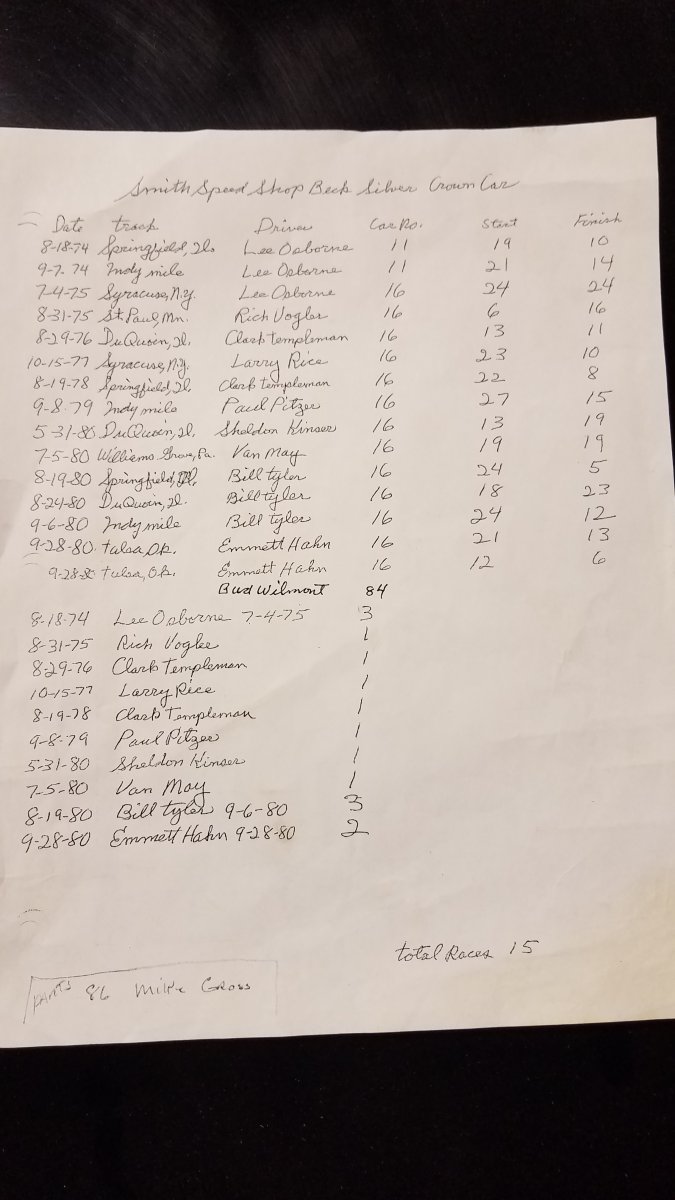 Smith Speed Shop Beck Silver Crown Car
Date track Driver Car No. Start Finish
8-18-74 Springfield, Il. Lee Osborne 11 19 10
9-7-74 Indy mile Lee Osborne 11 21 14
7-4-75 Syracuse, N.Y. Lee Osborne 16 24 24
8-31-75 St. Paul, Mn. Rich Vogler 16 6 16
8-29-76 DuQuoin, Il. Clark templeman 16 13 11
10-15-77 Syracuse, N.Y. Larry Rice 16 23 10
8-19-78 Springfield, Il. Clark templeman 16 22 8
9-8-79 Indy mile Paul Pitzer 16 27 15
5-31-80 DuQuoin, Il. Sheldon Kinser 16 13 19
7-5-80 Williams Grove, Pa. Van May 16 19 19
8-19-80 Springfield, Il. Bill tyler 16 24 5
8-24-80 DuQuoin, Il. Bill tyler 16 18 23
9-6-80 Indy mile Bill tyler 16 24 12
9-28-80 tulsa, Ok. Emmett Hahn 16 21 13
9-28-80 tulsa, Ok. Emmett Hahn 16 12 6
Bud Wilmont 84
8-18-74 Lee Osborne 7-4-75 3
8-31-75 Rich Vogler 1
8-29-76 Clark Templeman 1
10-15-77 Larry Rice 1
8-19-78 Clark Templeman 1
9-8-79 Paul Pitzer 1
5-31-80 Sheldon Kinser 1
7-5-80 Van May 1
8-19-80 Bill tyler 9-6-80 3
9-28-80 Emmett Hahn 9-28-80 2
total Races 15
PARTS 86 Mike Gross